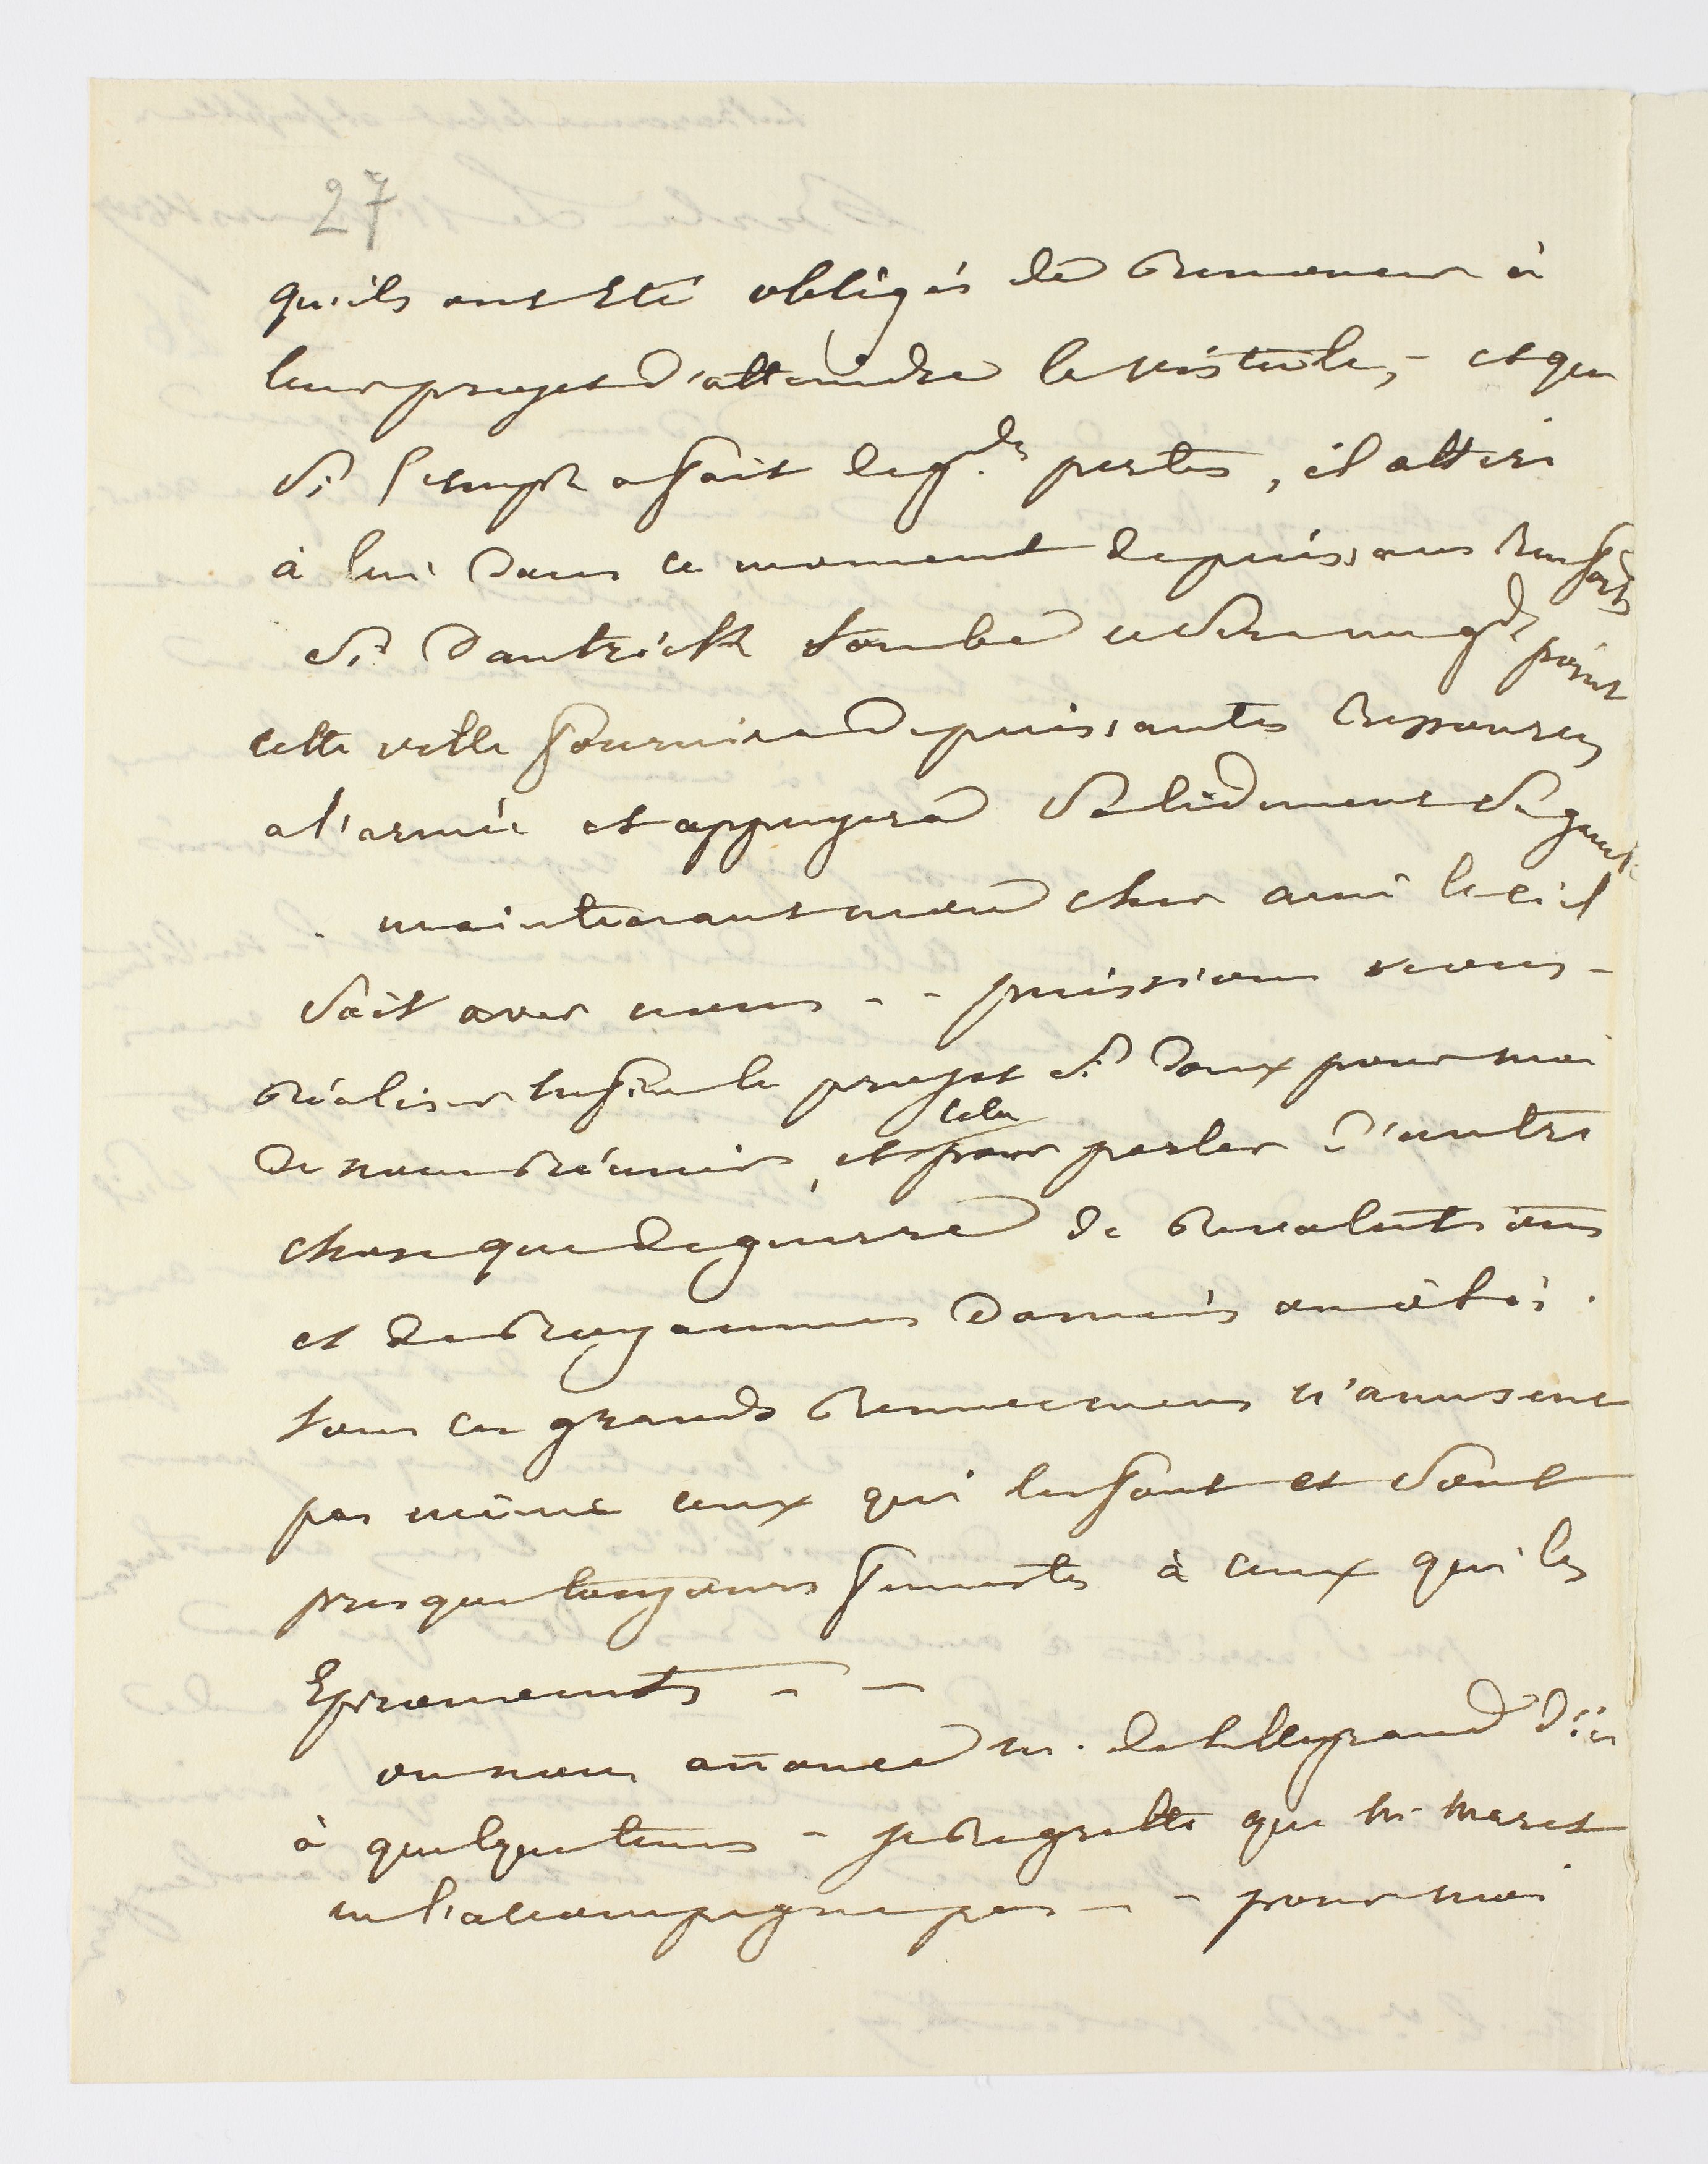 27
qu'ils ont Eté obligés de Renoncer à
leur projet d'atteindre la vistule, - et que
si l'emp.r a fait de g.des pertes, il attire
à lui dans ce moment de puissans Renforts
si Dantzick tombe ce sera un g.d point
cette ville fournira de puissantes Ressources
a l'armée et appuyera solidement sa gauche
maintenant mon cher ami le ciel
soit avec nous - - puissions nous -
Réaliser enfin le projet si doux pour moi
de nous Réunir, et cela pour parler d'autre
chose que de guerre de Revolutions
et de Royaumes donnés ou ôtés.
tous ces grands Remuemens n'amusent
pas même ceux qui les font et sont
presque toujours funestes à ceux qui les
Eprouvent - -
on nous añonce m. de talleyrand d'ici
à quelque tems - je Regrette que m. maret
ne l'accompagne pas - - pour moi